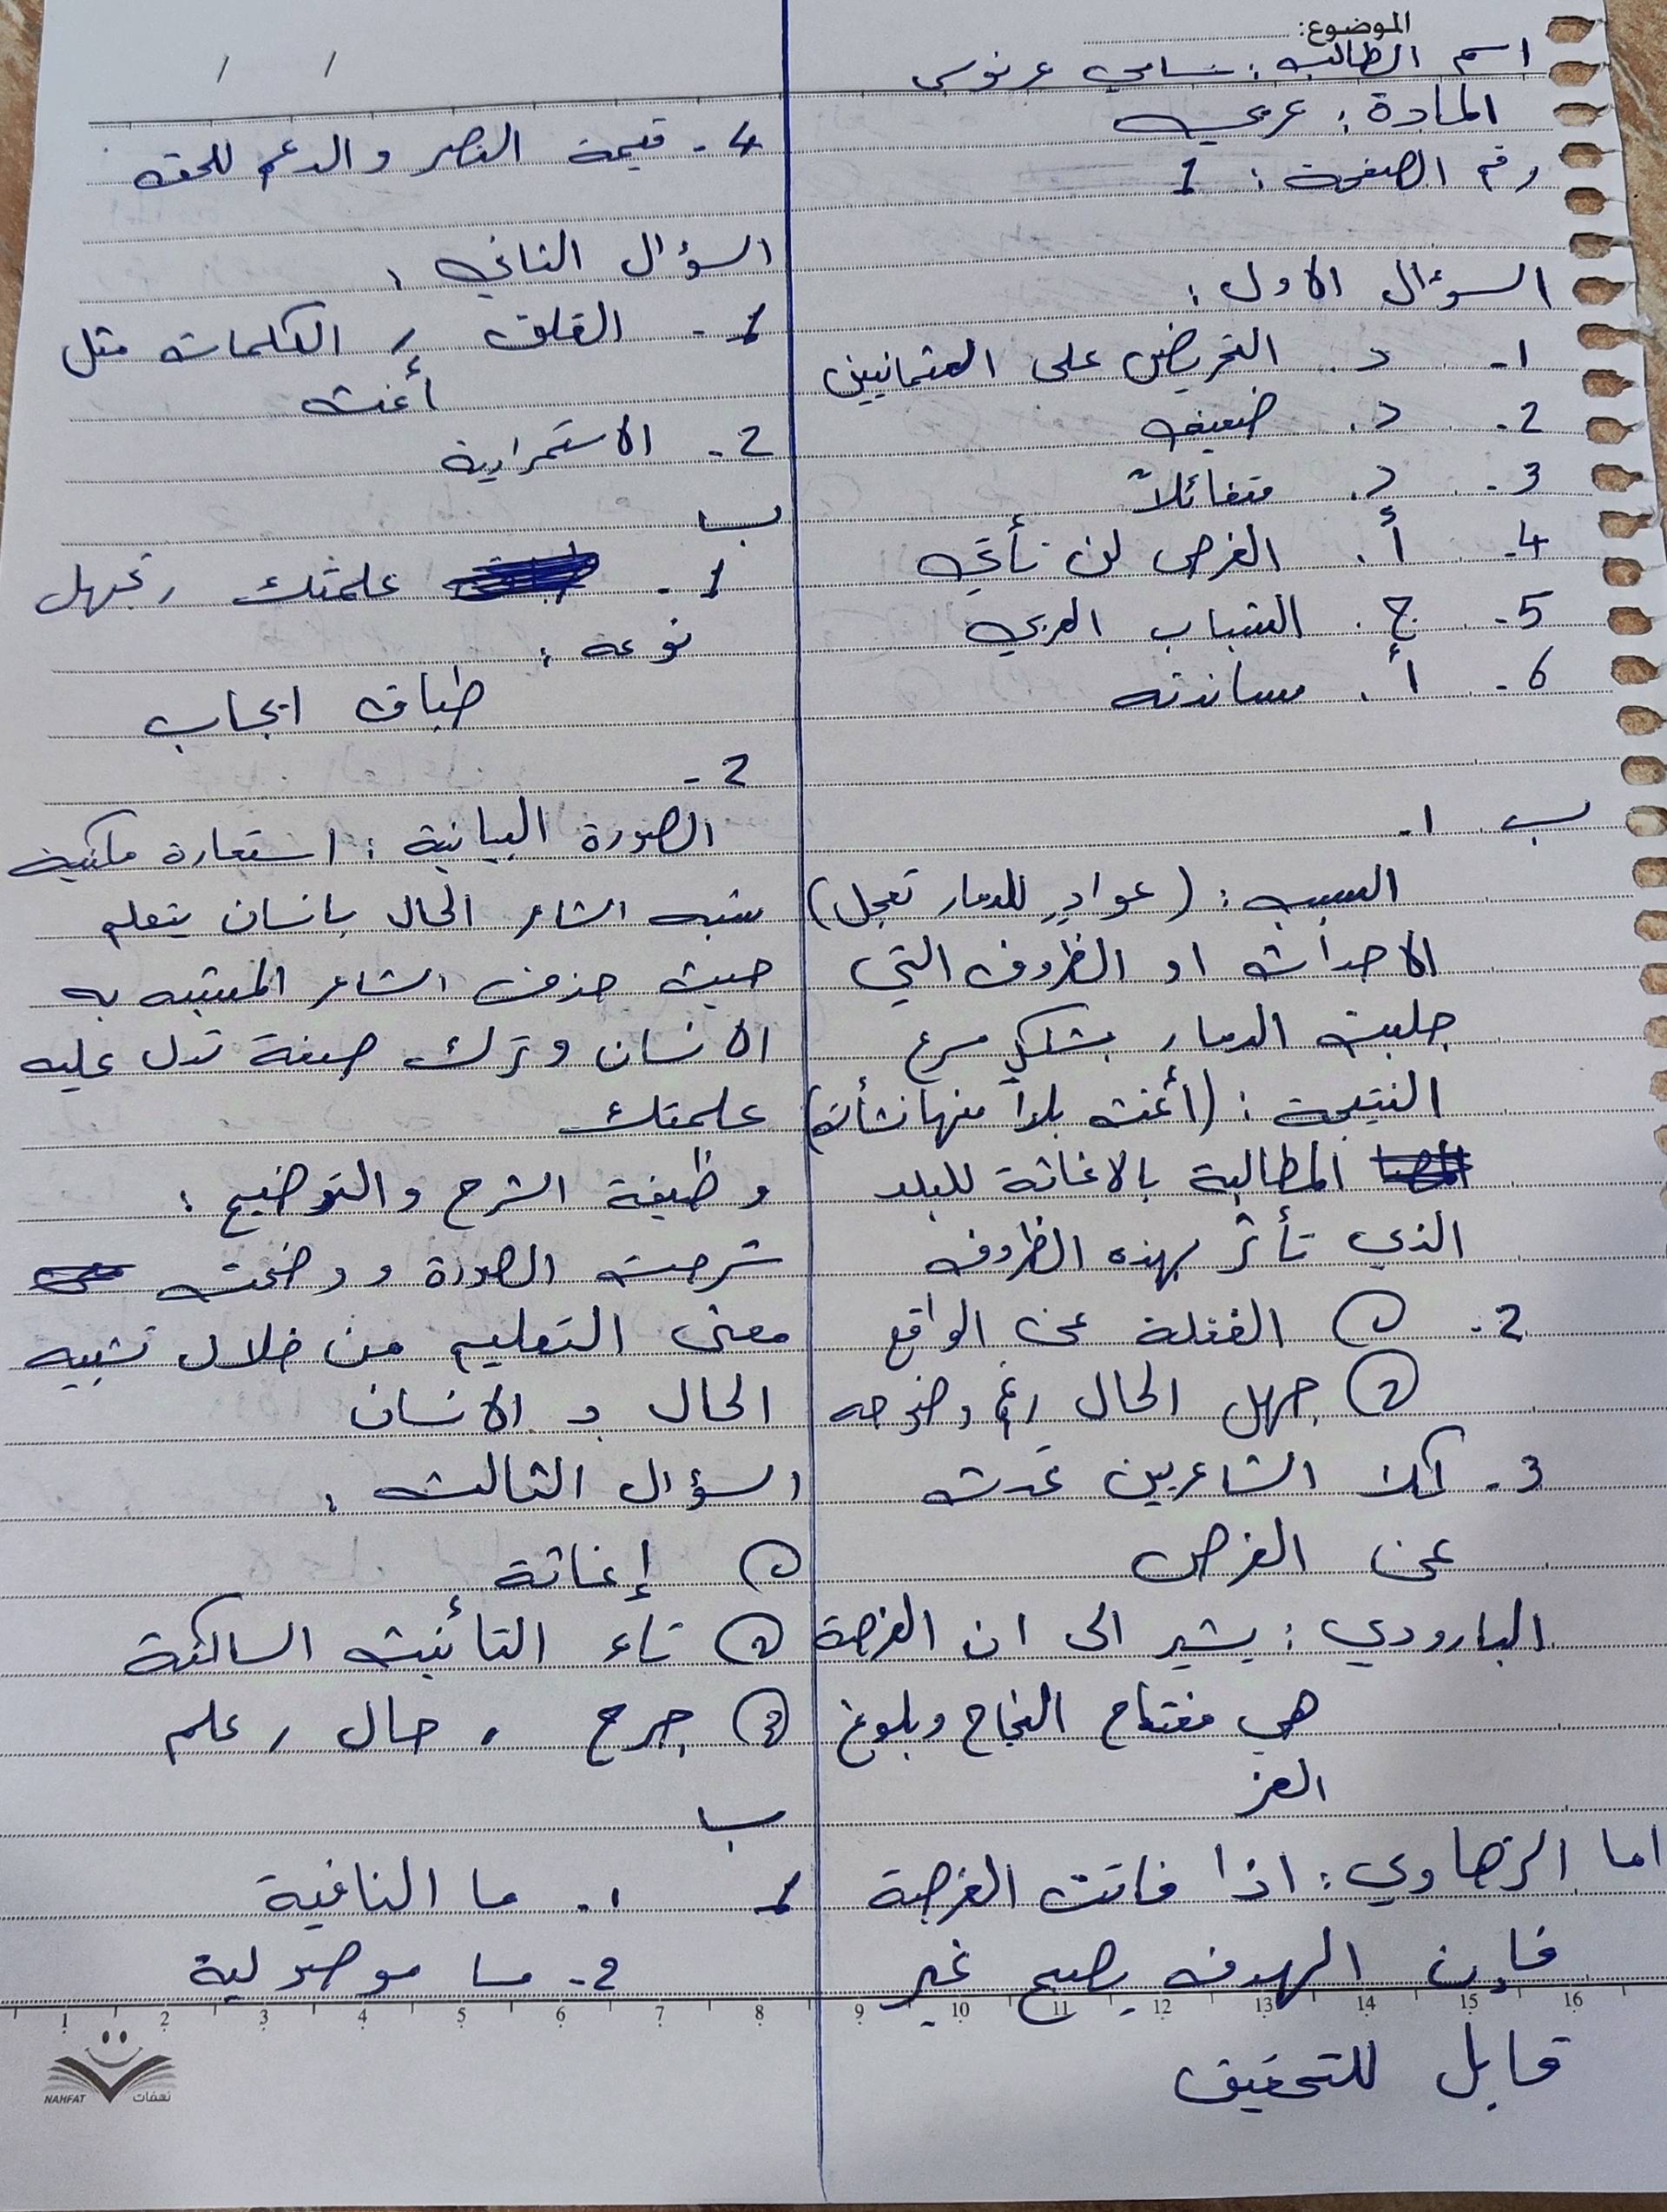 الموضوع:
اسم الطالب: سامي عرنوس
المادة: عربي
رقم الصفحة: 1
السؤال الاول:
1- د. التحريض على العثمانيين
2- د. ضعيف
3- د. متفائلاً
4- أ. الفرص لن تأتي
5- ج. الشباب العربي
6- أ. مساندته
ب 1-
السبب: (عوادٍ للدمار تعجل)
الاحداث او الظروف التي
جلبت الدمار بشكل سريع
النتيجة: (أغث بلداً منها نشأت)
المطالبة بالاغاثة للبلد
الذي تأثر بهذه الظروف
2- 1 الغفلة عن الواقع
2 جهل الحال رغم وضوحه
3- كلا الشاعرين تحدث
عن الفرص
البارودي: يشير الى ان الفرصة
هي مفتاح النجاح وبلوغ
العز
اما الزهاوي: اذا فاتت الفرصة
فإن الهدف يصبح غير
قابل للتحقيق
4- قيمة النصر والدعم للحق
السؤال الثاني:
1- القلق، الكلمات مثل
أغث
2- الاستمرارية
ب
1- علمتك، تجهل
نوعه:
طباق ايجاب
2-
الصورة البيانية: استعارة مكنية
شبه الشاعر الحال بانسان يتعلم
حيث حذف الشاعر المشبه به
الانسان وترك صفة تدل عليه
علمتك
وظيفة الشرح والتوضيح:
شرحت الصورة ووضحت
معنى التعليم من خلال تشبيه
الحال بـ الانسان
السؤال الثالث:
1 إغاثة
2 تاء التأنيث الساكنة
3 جرح، حال، علم
ب
1 1. ما النافية
2- ما موصولية
1 2 3 4 5 6 7 8 9 10 11 12 13 14 15 16
NAHFAT نهفات